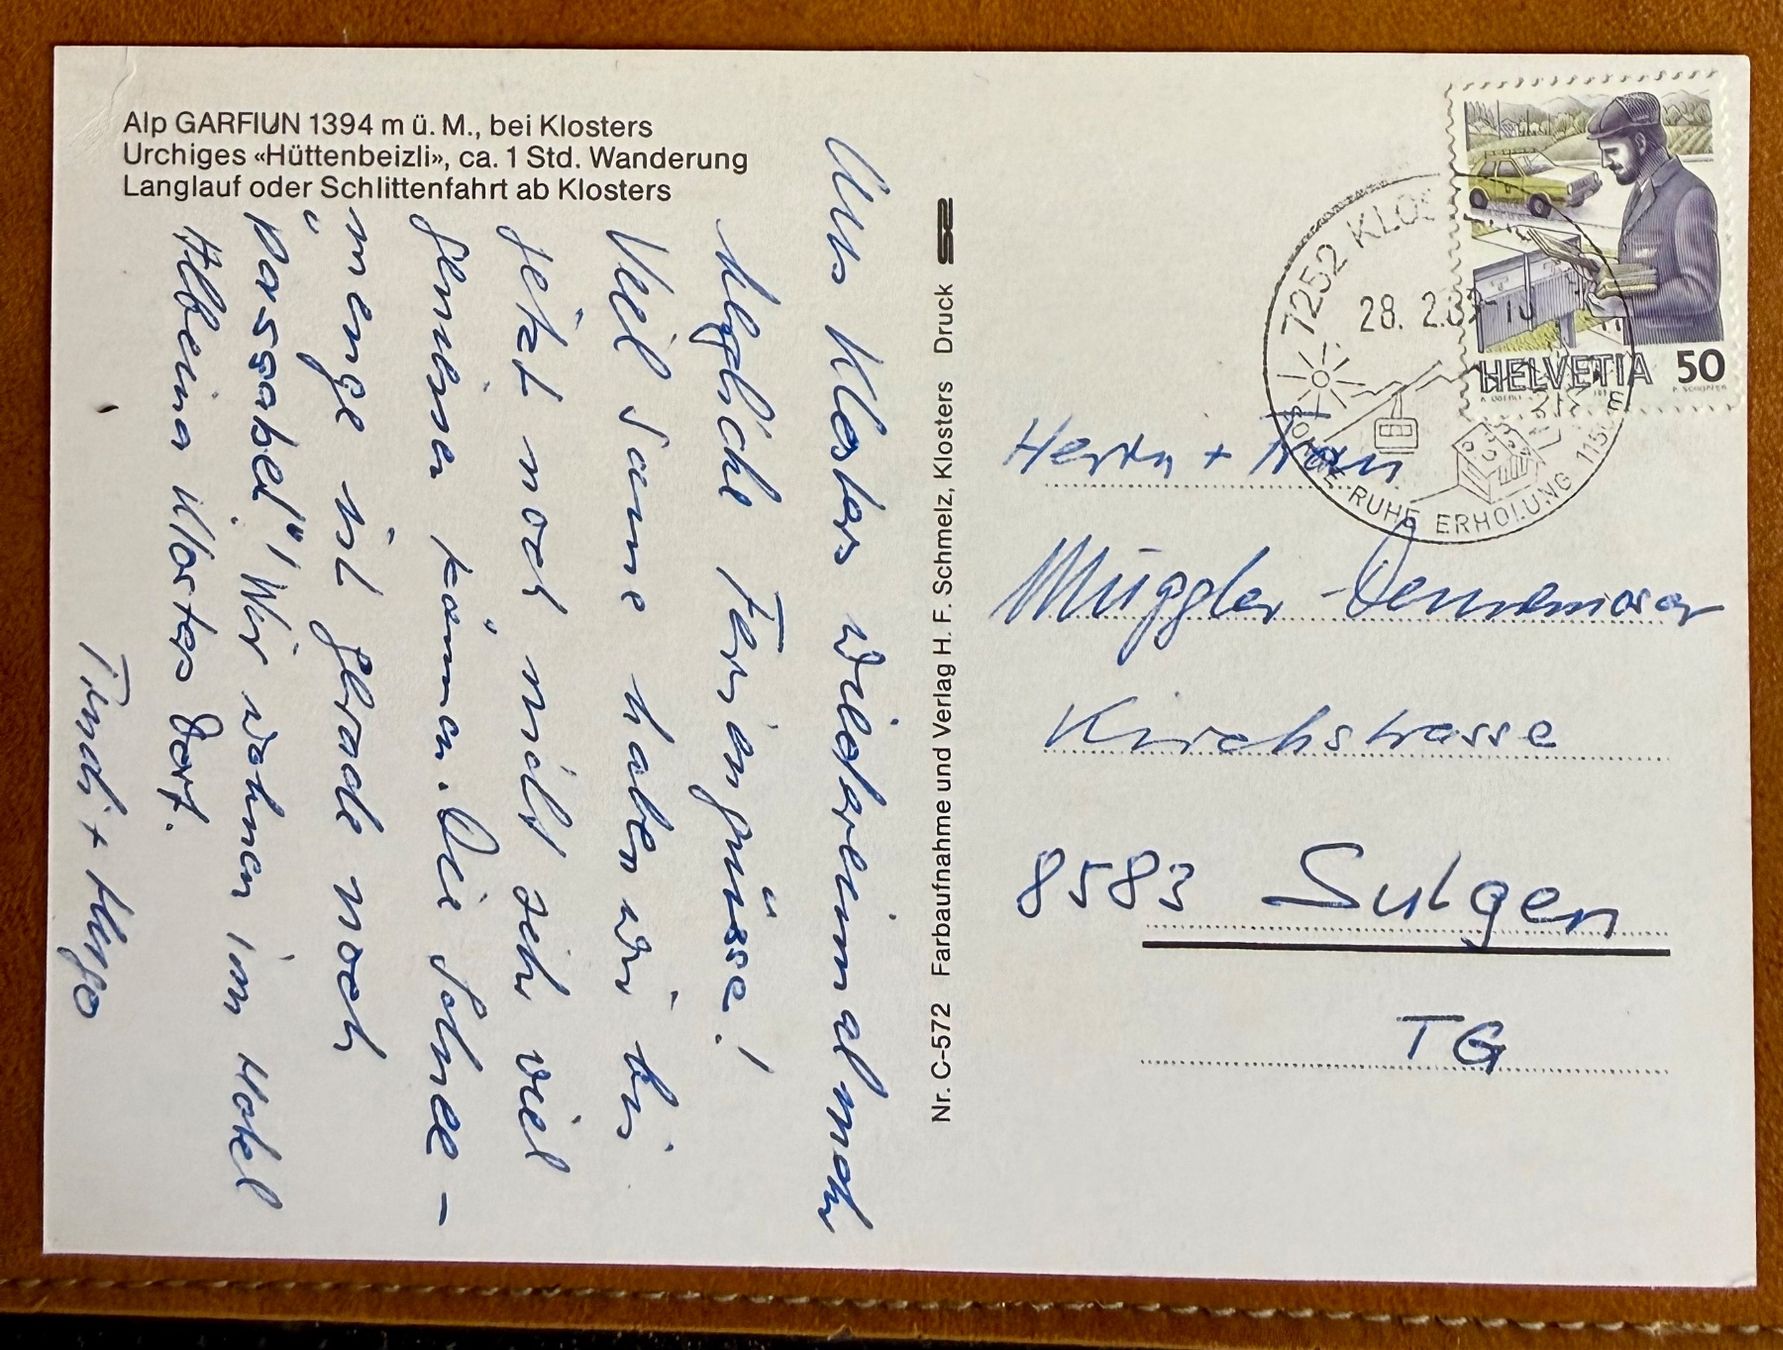 Alp GARFIUN 1394 m ü. M., bei Klosters
Urchiges «Hüttenbeizli», ca. 1 Std. Wanderung
Langlauf oder Schlittenfahrt ab Klosters
Aus Klosters wiedereinmal mehr
herzliche Feriengrüsse!
Viel Sonne haben wir bis
jetzt noch nicht sehr viel
geniessen können. Die Schnee-
menge ist gerade noch
"passabel"! Wir wohnen im Hotel
Albeina Klosters Dorf.
Trudi + Hugo
Nr. C-572 Farbaufnahme und Verlag H. F. Schmelz, Klosters Druck
7252 KLOS
28. 2.
SONNE RUHE ERHOLUNG
HELVETIA 50
Herrn + Frau
Müggler-
Kirchstrasse
8583 Sulgen
TG